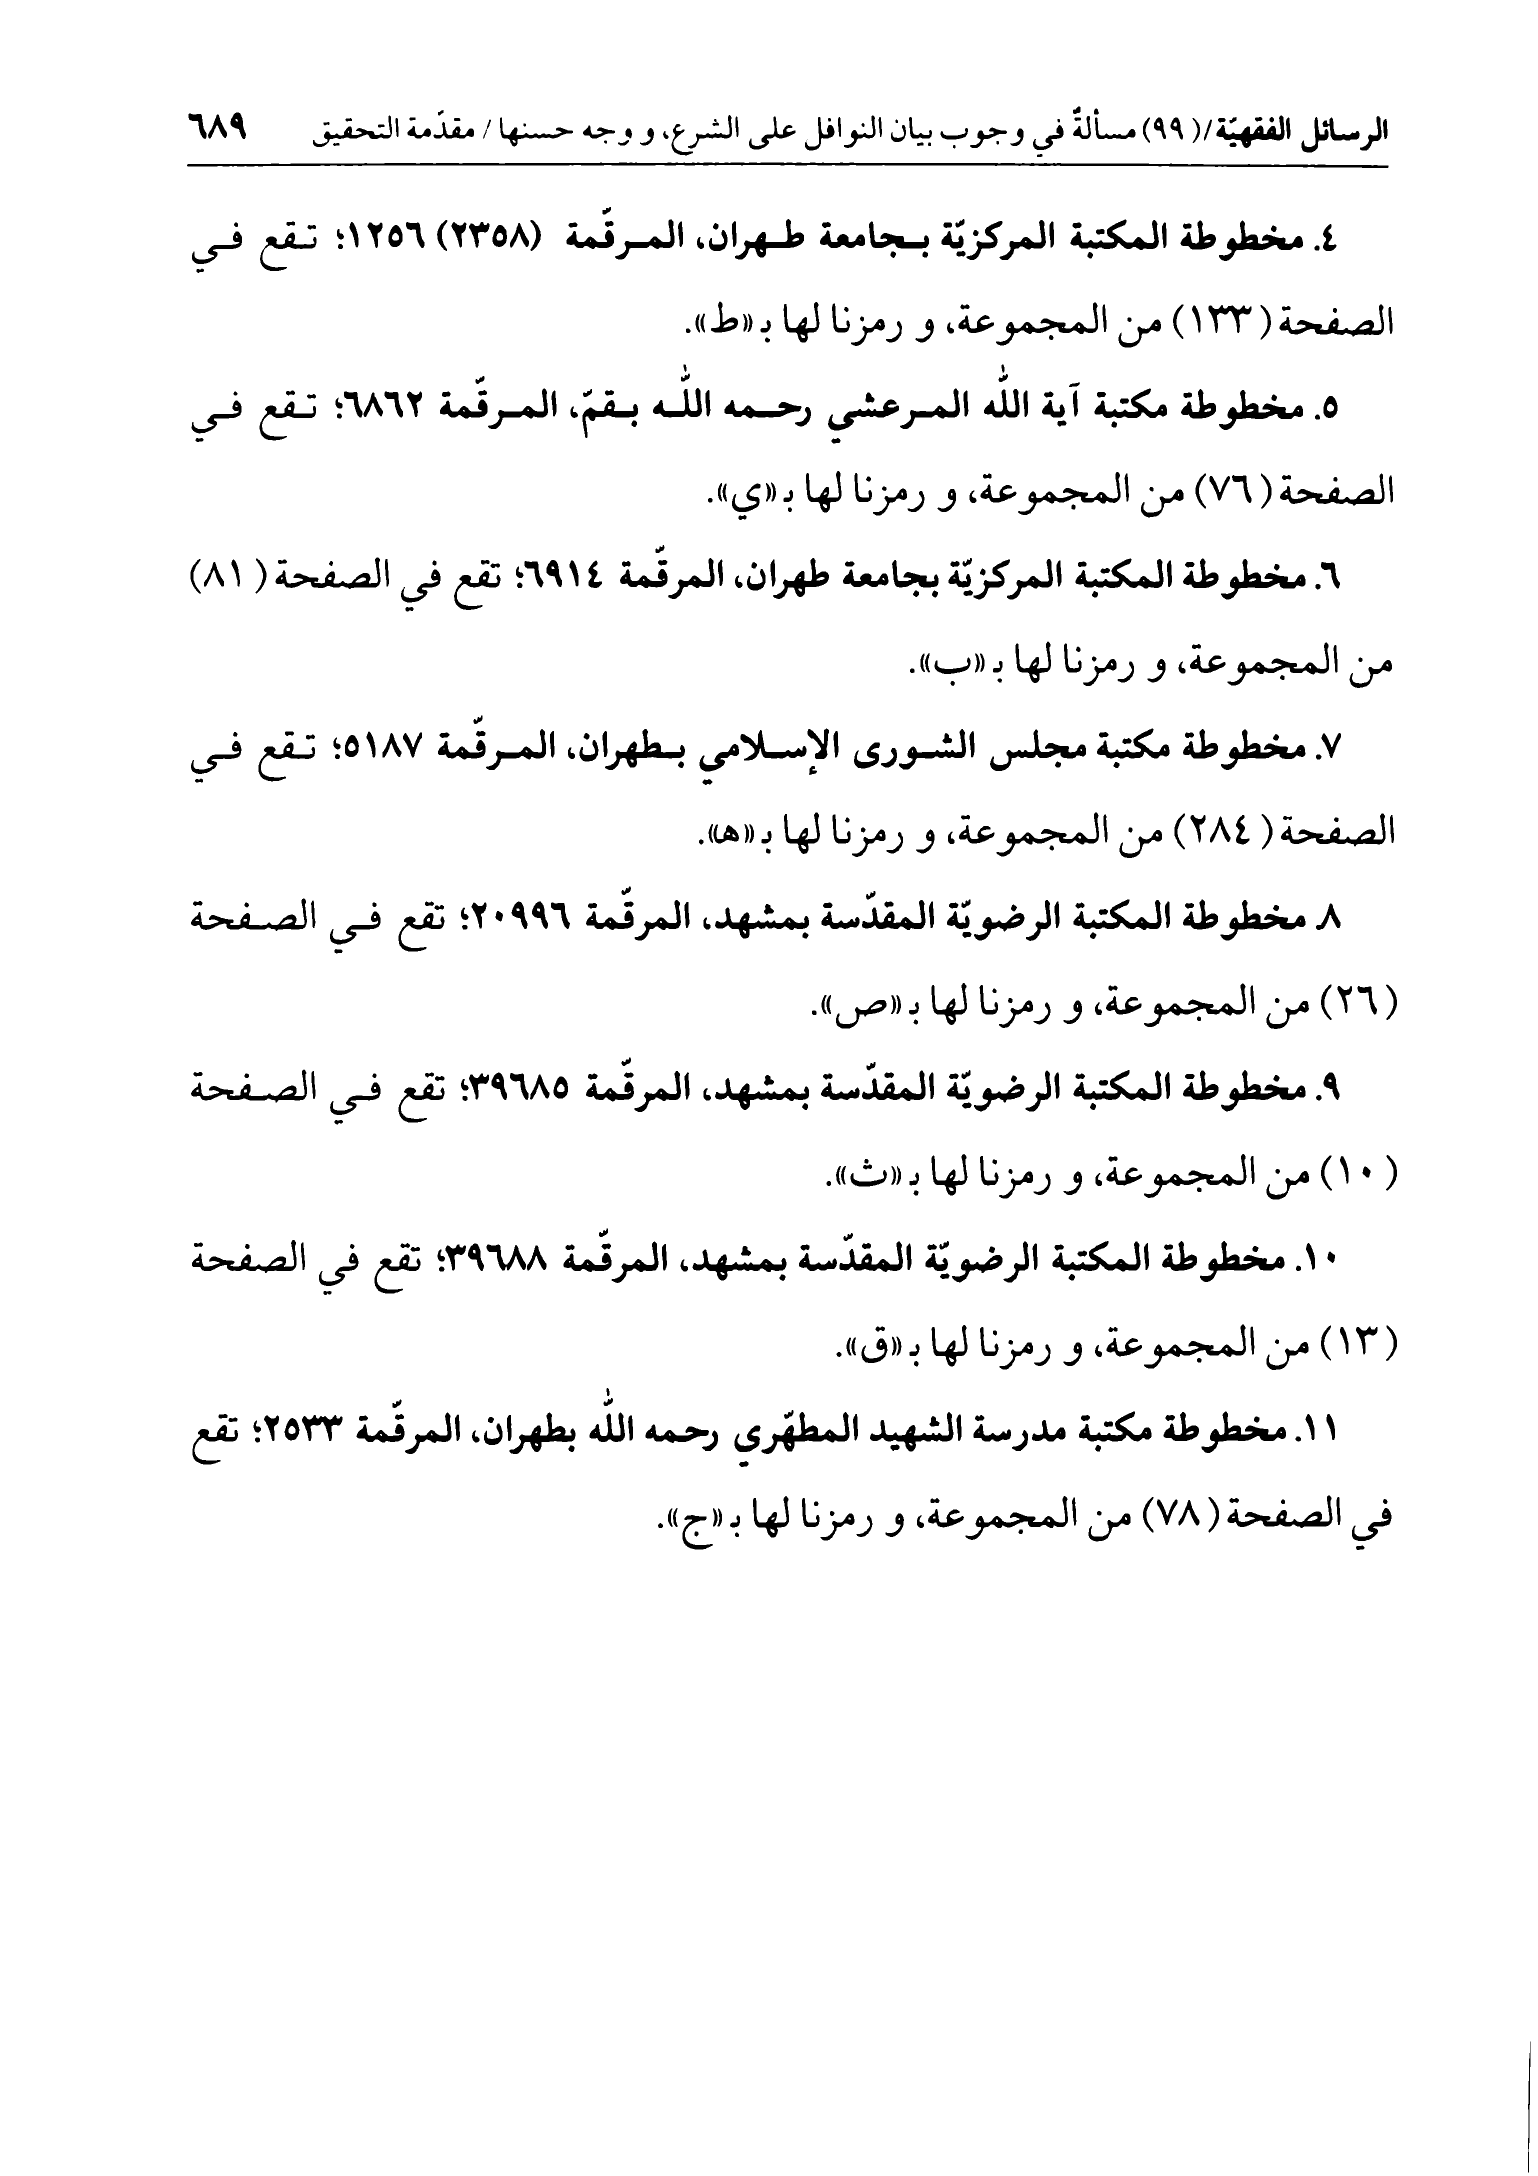 الرسائل الفقهيّة/(٩٩) مسألةٌ في وجوب بيان النوافل على الشرع، و وجه حسنها / مقدّمة التحقيق ٦٨٩
٤. مخطوطة المكتبة المركزيّة بـجامعة طـهران، المـرقّمة (٢٣٥٨) ١٢٥٦؛ تـقع فـي
الصفحة (١٣٣) من المجموعة، و رمزنا لها بـ«ط».
٥. مخطوطة مكتبة آية اللّٰه المـرعشي رحـمه اللّٰـه بـقمّ، المـرقّمة ٦٨٦٢؛ تـقع فـي
الصفحة (٧٦) من المجموعة، و رمزنا لها بـ«ي».
٦. مخطوطة المكتبة المركزيّة بجامعة طهران، المرقّمة ٦٩١٤؛ تقع في الصفحة (٨١)
من المجموعة، و رمزنا لها بـ«ب».
٧. مخطوطة مكتبة مجلس الشـورى الإسـلامي بـطهران، المـرقّمة ٥١٨٧؛ تـقع فـي
الصفحة (٢٨٤) من المجموعة، و رمزنا لها بـ«هـ».
٨. مخطوطة المكتبة الرضويّة المقدّسة بمشهد، المرقّمة ٢٠٩٩٦؛ تقع فـي الصـفحة
(٢٦) من المجموعة، و رمزنا لها بـ«ص».
٩. مخطوطة المكتبة الرضويّة المقدّسة بمشهد، المرقّمة ٣٩٦٨٥؛ تقع فـي الصـفحة
(١٠) من المجموعة، و رمزنا لها بـ«ث».
١٠. مخطوطة المكتبة الرضويّة المقدّسة بمشهد، المرقّمة ٣٩٦٨٨؛ تقع في الصفحة
(١٣) من المجموعة، و رمزنا لها بـ«ق».
١١. مخطوطة مكتبة مدرسة الشهيد المطهّري رحمه اللّٰه بطهران، المرقّمة ٢٥٣٣؛ تقع
في الصفحة (٧٨) من المجموعة، و رمزنا لها بـ«ج».